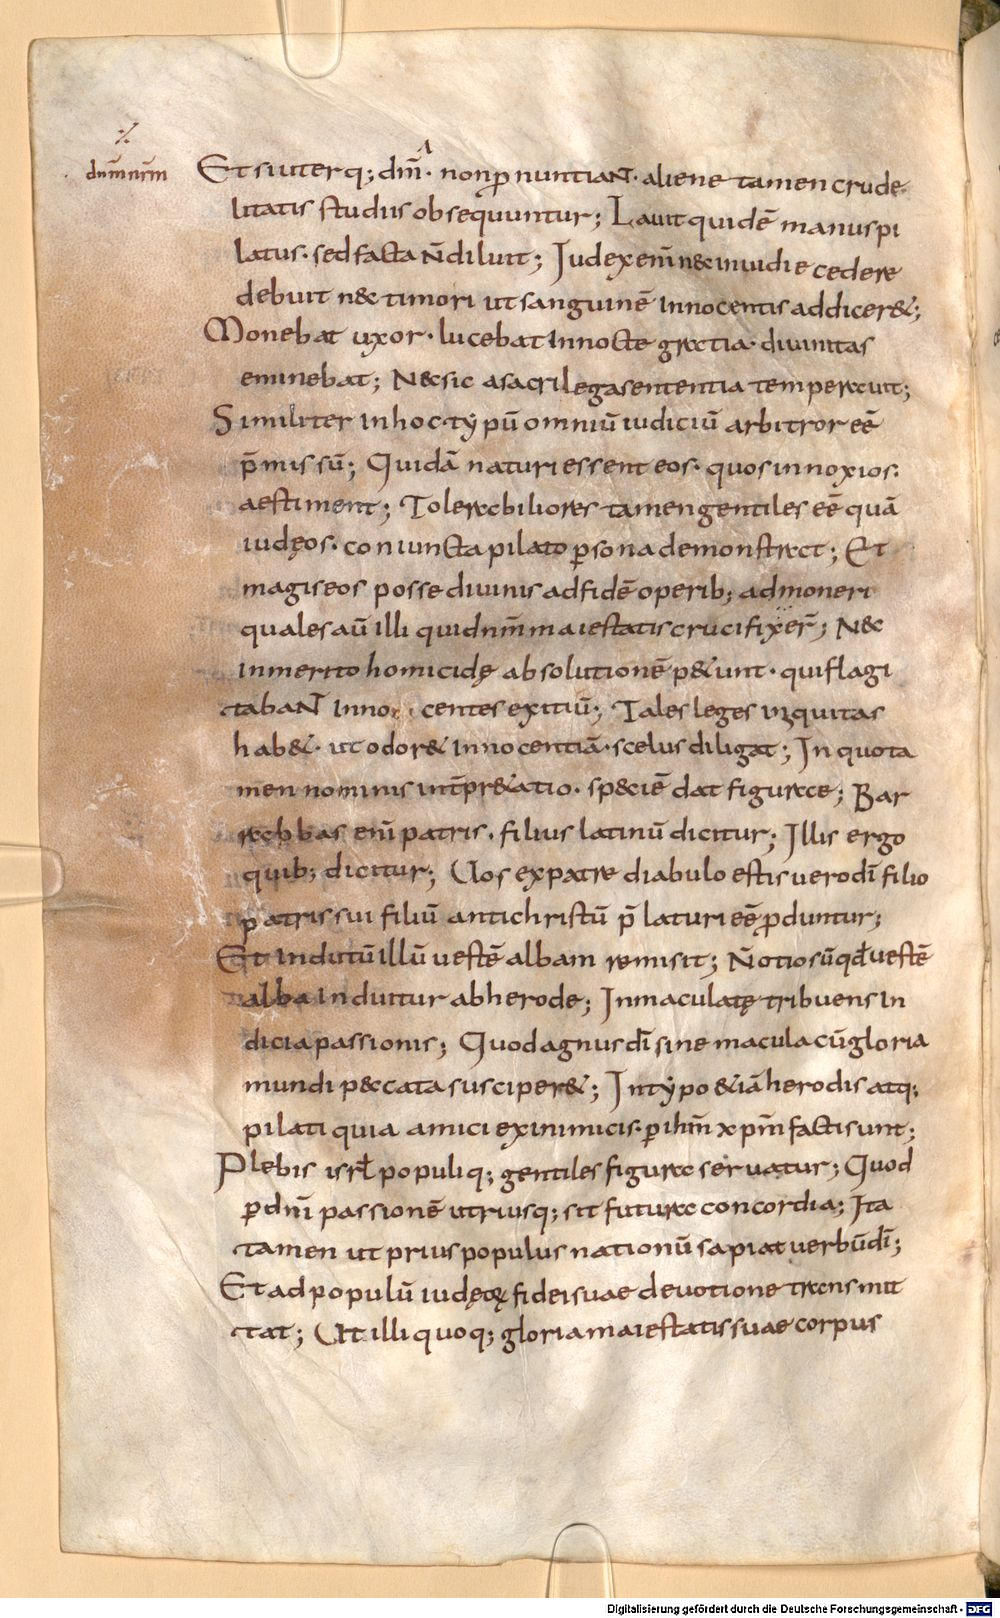 ⁒
dn̄m nr̄m
Et si uterq; dm̄· non p̄nuntiant· alienę tamen crude
litatis studiis obsequuntur; Lauit quidē manus pi
latus· sed facta n̄ diluit; Iudex enī nec inuidię cedere
debuit nec timori ut sanguinē innocentis addiceret;
Monebat uxor· lucebat in nocte gratia· diuinitas
eminebat; Nec sic a sacrilega sententia temperauit;
Similiter in hoc typū omniū iudiciū arbitror eē̄
p̄missū; Quidā naturi essent eos· quos innoxios
aestiment; Tolerabiliores tamen gentiles eē̄ quā
iudęos· coniuncta pilato p̄sona demonstrat; Et
magis eos posse diuinis ad fidē operib; admoneri
quales aū illi qui dn̄m maiestatis crucifixer̄; Nec
inmerito homicidę absolutionē petunt· qui flagi
tabant inno centes exitiū; Tales leges iniquitas
habet· ut odoret innocentiā· scelus diligat; In quo ta
men nominis int̄pretatio· speciē dat figurae; Bar
rabbas enī patris· filius latinū dicitur; Illis ergo
quib; dicitur; Uos ex patre diabulo estis uero dī filio
patris sui filiū antichristū p̄laturi eē̄ p̄duntur;
Et indutū illū uestē albam remisit; N̄ otiosū qđ uestē
alba induitur ab herode; Inmaculatę tribuens in
dicia passionis; Quod agnus dī sine macula cū gloria
mundi peccata susciperet; In typo etiā herodis atq;
pilati quia amici ex inimicis· p̄ ihm̄ xp̄m facti sunt;
Plebis isrł populiq; gentiles figura seruatur; Quod
p̄ dnī passionē utriusq; sit futura concordia; Ita
tamen ut prius populus nationū sapiat uerbū dī;
Et ad populū iudęoꝝ fidei suae deuotione transmit
tat; Ut illi quoq; gloria maiestatis suae corpus
Digitalisierung gefördert durch die Deutsche Forschungsgemeinschaft - DFG